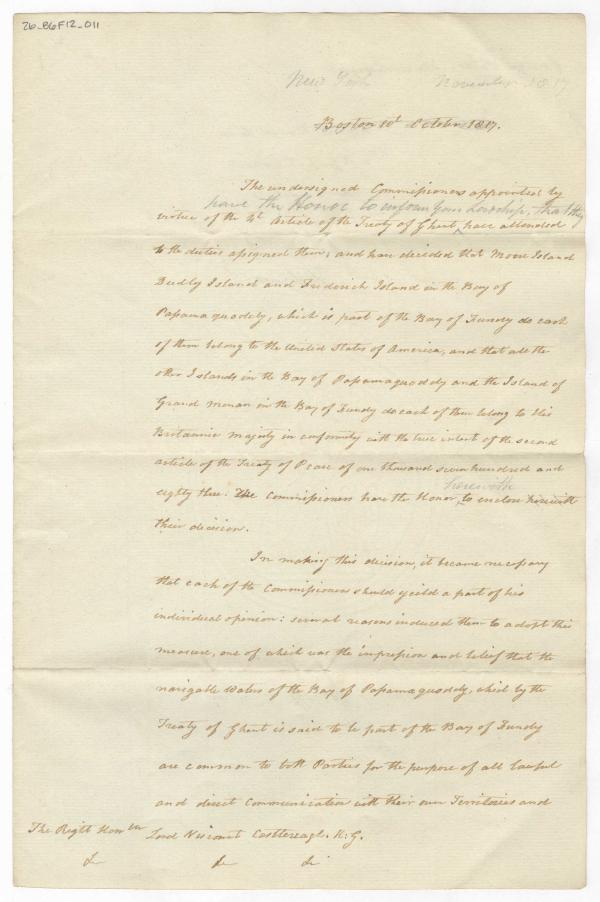 26_B6F12_011
New York November 1817
Boston 10th October 1817.
The undersigned Commissioners appointed by
have the Honor to inform your Lordship, that they
virtue of the 4th Article of the Treaty of Ghent, have attended
to the duties assigned them; and have decided that Moose Island
Dudly Island and Frederick Island in the Bay of
Passamaquoddy, which is part of the Bay of Fundy do each
of them belong to the United States of America, and that all the
other Islands in the Bay of Passamaquoddy and the Island of
Grand Manan in the Bay of Fundy do each of them belong to His
Britannic Majesty in conformity with the true intent of the second
article of the Treaty of Peace of one thousand seven hundred and
herewith
eighty three. The Commissioners have the Honor, to enclose herewith
their decision.
In making this decision, it became necessary
that each of the Commissioners should yield a part of his
individual opinion: several reasons induced them to adopt this
measure, one of which was the impression and belief that the
navigable waters of the Bay of Passamaquoddy, which by the
Treaty of Ghent is said to be part of the Bay of Fundy
are common to both Parties for the purpose of all lawful
and direct Communication with their own Territories and
The Right Honble Lord Viscount Castlereagh. K.G.
&c &c &c